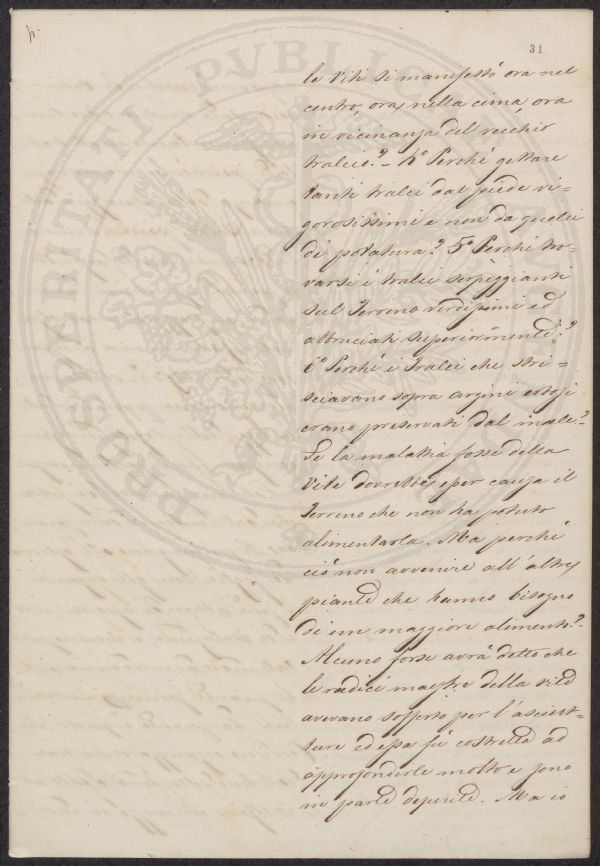 h.
31
le Viti si manifestò ora nel
centro, ora, nella cima, ora
in vicinanza del vecchio
tralcio? - 4° Perchè gettare
tanti tralci dal piede vi=
gorosissimi e non da quelli
di potatura? 5° Perchè tro=
varsi i tralci serpeggianti
sul Terreno verdissimi ed
abbruciati superiormente?
6° Perchè i Tralci che stri=
sciavano sopra argini erbosi
erano preservati dal male?
Se la malattia fosse della
Vite dovrebbe esser causa il
Terreno che non ha potuto
alimentarla. Ma perchè
ciò non avvenire all'altre
piante che hanno bisogno
di un maggiore alimento?
Alcuno forse avrà detto che
le radici maestre della vite
avevano sofferto per l'asciut=
ture ed essa fù costretta ad
approfondirle molto e sono
in parte deperite. Ma io
PROSPERITATI PVBLICAE